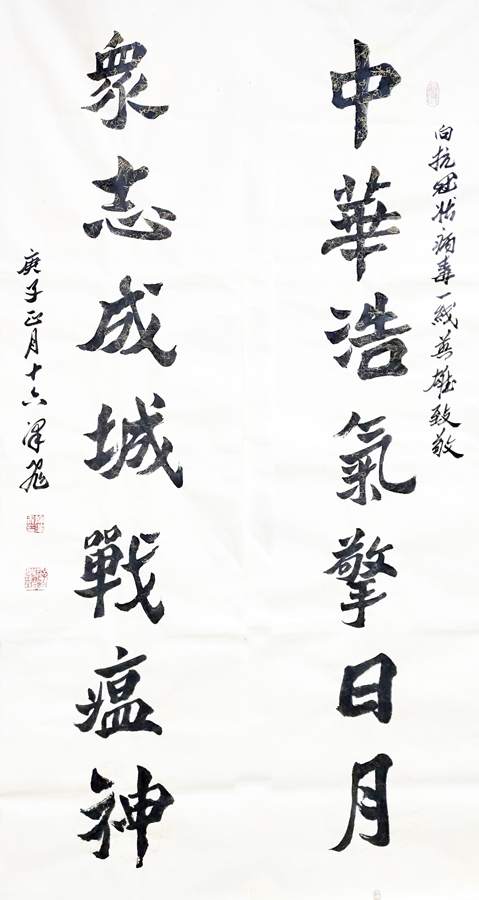 向抗冠状病毒一线英雄致敬
中華浩氣擎日月
眾志成城戰瘟神
庚子正月十六泽飛